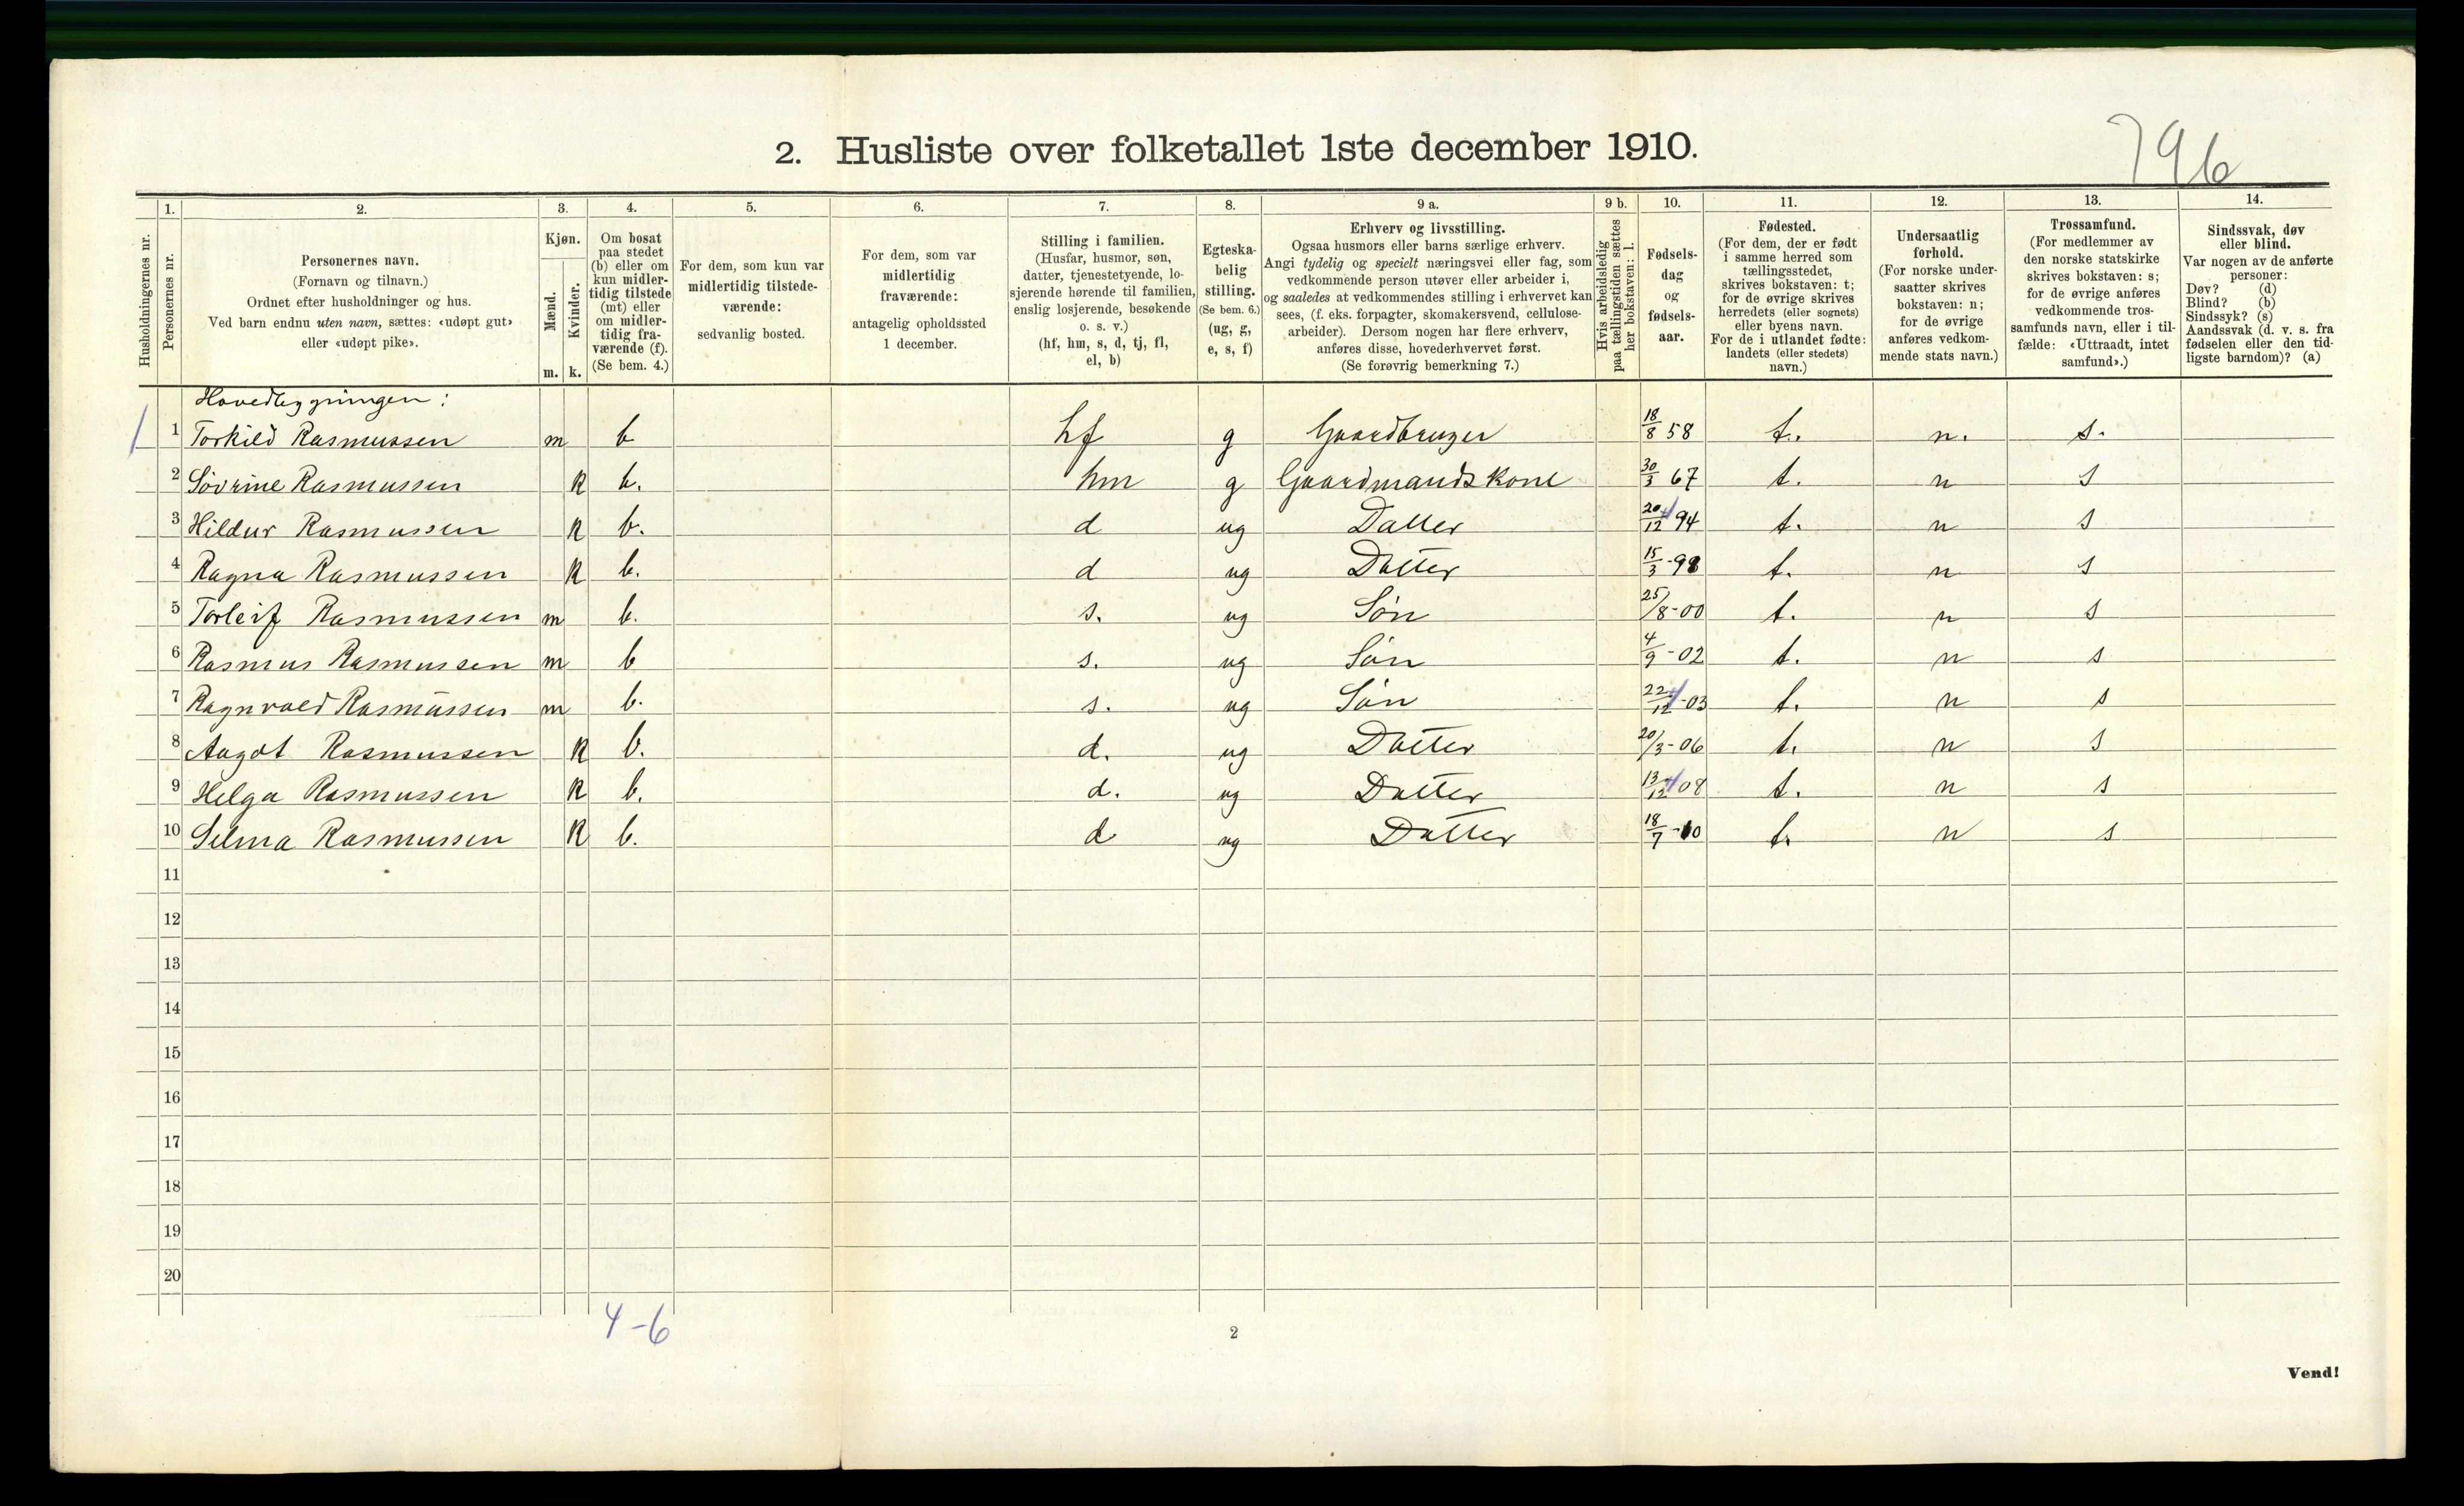 796
2. Husliste over folketallet 1ste december 1910.
Husholdningernes nr.
1. Personernes nr.
2. Personernes navn.
(Fornavn og tilnavn.)
Ordnet efter husholdninger og hus.
Ved barn endnu uten navn, sættes: «udøpt gut»
eller «udøpt pike».
3. Kjøn.
Mænd. m.
Kvinder. k.
4. Om bosat
paa stedet
(b) eller om
kun midler-
tidig tilstede
(mt) eller
om midler-
tidig fra-
værende (f).
(Se bem. 4.)
5. For dem, som kun var
midlertidig tilstede-
værende:
sedvanlig bosted.
6. For dem, som var
midlertidig
fraværende:
antagelig opholdssted
1 december.
7. Stilling i familien.
(Husfar, husmor, søn,
datter, tjenestetyende, lo-
sjerende hørende til familien,
enslig losjerende, besøkende
o. s. v.)
(hf, hm, s, d, tj, fl,
el, b)
8. Egteska-
belig
stilling.
(Se bem. 6.)
(ug, g,
e, s, f)
9 a. Erhverv og livsstilling.
Ogsaa husmors eller barns særlige erhverv.
Angi tydelig og specielt næringsvei eller fag, som
vedkommende person utøver eller arbeider i,
og saaledes at vedkommendes stilling i erhvervet kan
sees, (f. eks. forpagter, skomakersvend, cellulose-
arbeider). Dersom nogen har flere erhverv,
anføres disse, hovederhvervet først.
(Se forøvrig bemerkning 7.)
9 b. Hvis arbeidsledig
paa tællingstiden sættes
her bokstaven: l.
10. Fødsels-
dag
og
fødsels-
aar.
11. Fødested.
(For dem, der er født
i samme herred som
tællingsstedet,
skrives bokstaven: t;
for de øvrige skrives
herredets (eller sognets)
eller byens navn.
For de i utlandet fødte:
landets (eller stedets)
navn.)
12. Undersaatlig
forhold.
(For norske under-
saatter skrives
bokstaven: n;
for de øvrige
anføres vedkom-
mende stats navn.)
13. Trossamfund.
(For medlemmer av
den norske statskirke
skrives bokstaven: s;
for de øvrige anføres
vedkommende tros-
samfunds navn, eller i til-
fælde: «Uttraadt, intet
samfund».)
14. Sindssvak, døv
eller blind.
Var nogen av de anførte
personer:
Døv? (d)
Blind? (b)
Sindssyk? (s)
Aandssvak (d. v. s. fra
fødselen eller den tid-
ligste barndom)? (a)
Hovedbygningen:
1 1 Torkild Rasmussen m b hf g Gaardbruger 18/8 58 t. n. s.
2 Søvrine Rasmussen k b. hm g Gaardmandskone 30/3 67 t. n s
3 Hildur Rasmussen k b. d ug Datter 20/12 94 t. n s
4 Ragna Rasmussen k b. d ug Datter 15/3-98 t. n s
5 Torleif Rasmussen m b. s. ug Søn 25/8-00 t. n s
6 Rasmus Rasmussen m b s. ug Søn 4/9-02 t. n s
7 Ragnvald Rasmussen m b. s. ug Søn 22/12-03 t. n s
8 Aagot Rasmussen k b. d. ug Datter 20/3-06 t. n s
9 Helga Rasmussen k b. d. ug Datter 13/12 08 t. n s
10 Selma Rasmussen k b. d ug Datter 18/7-10 t. n s
11
12
13
14
15
16
17
18
19
20
4-6
2
Vend!